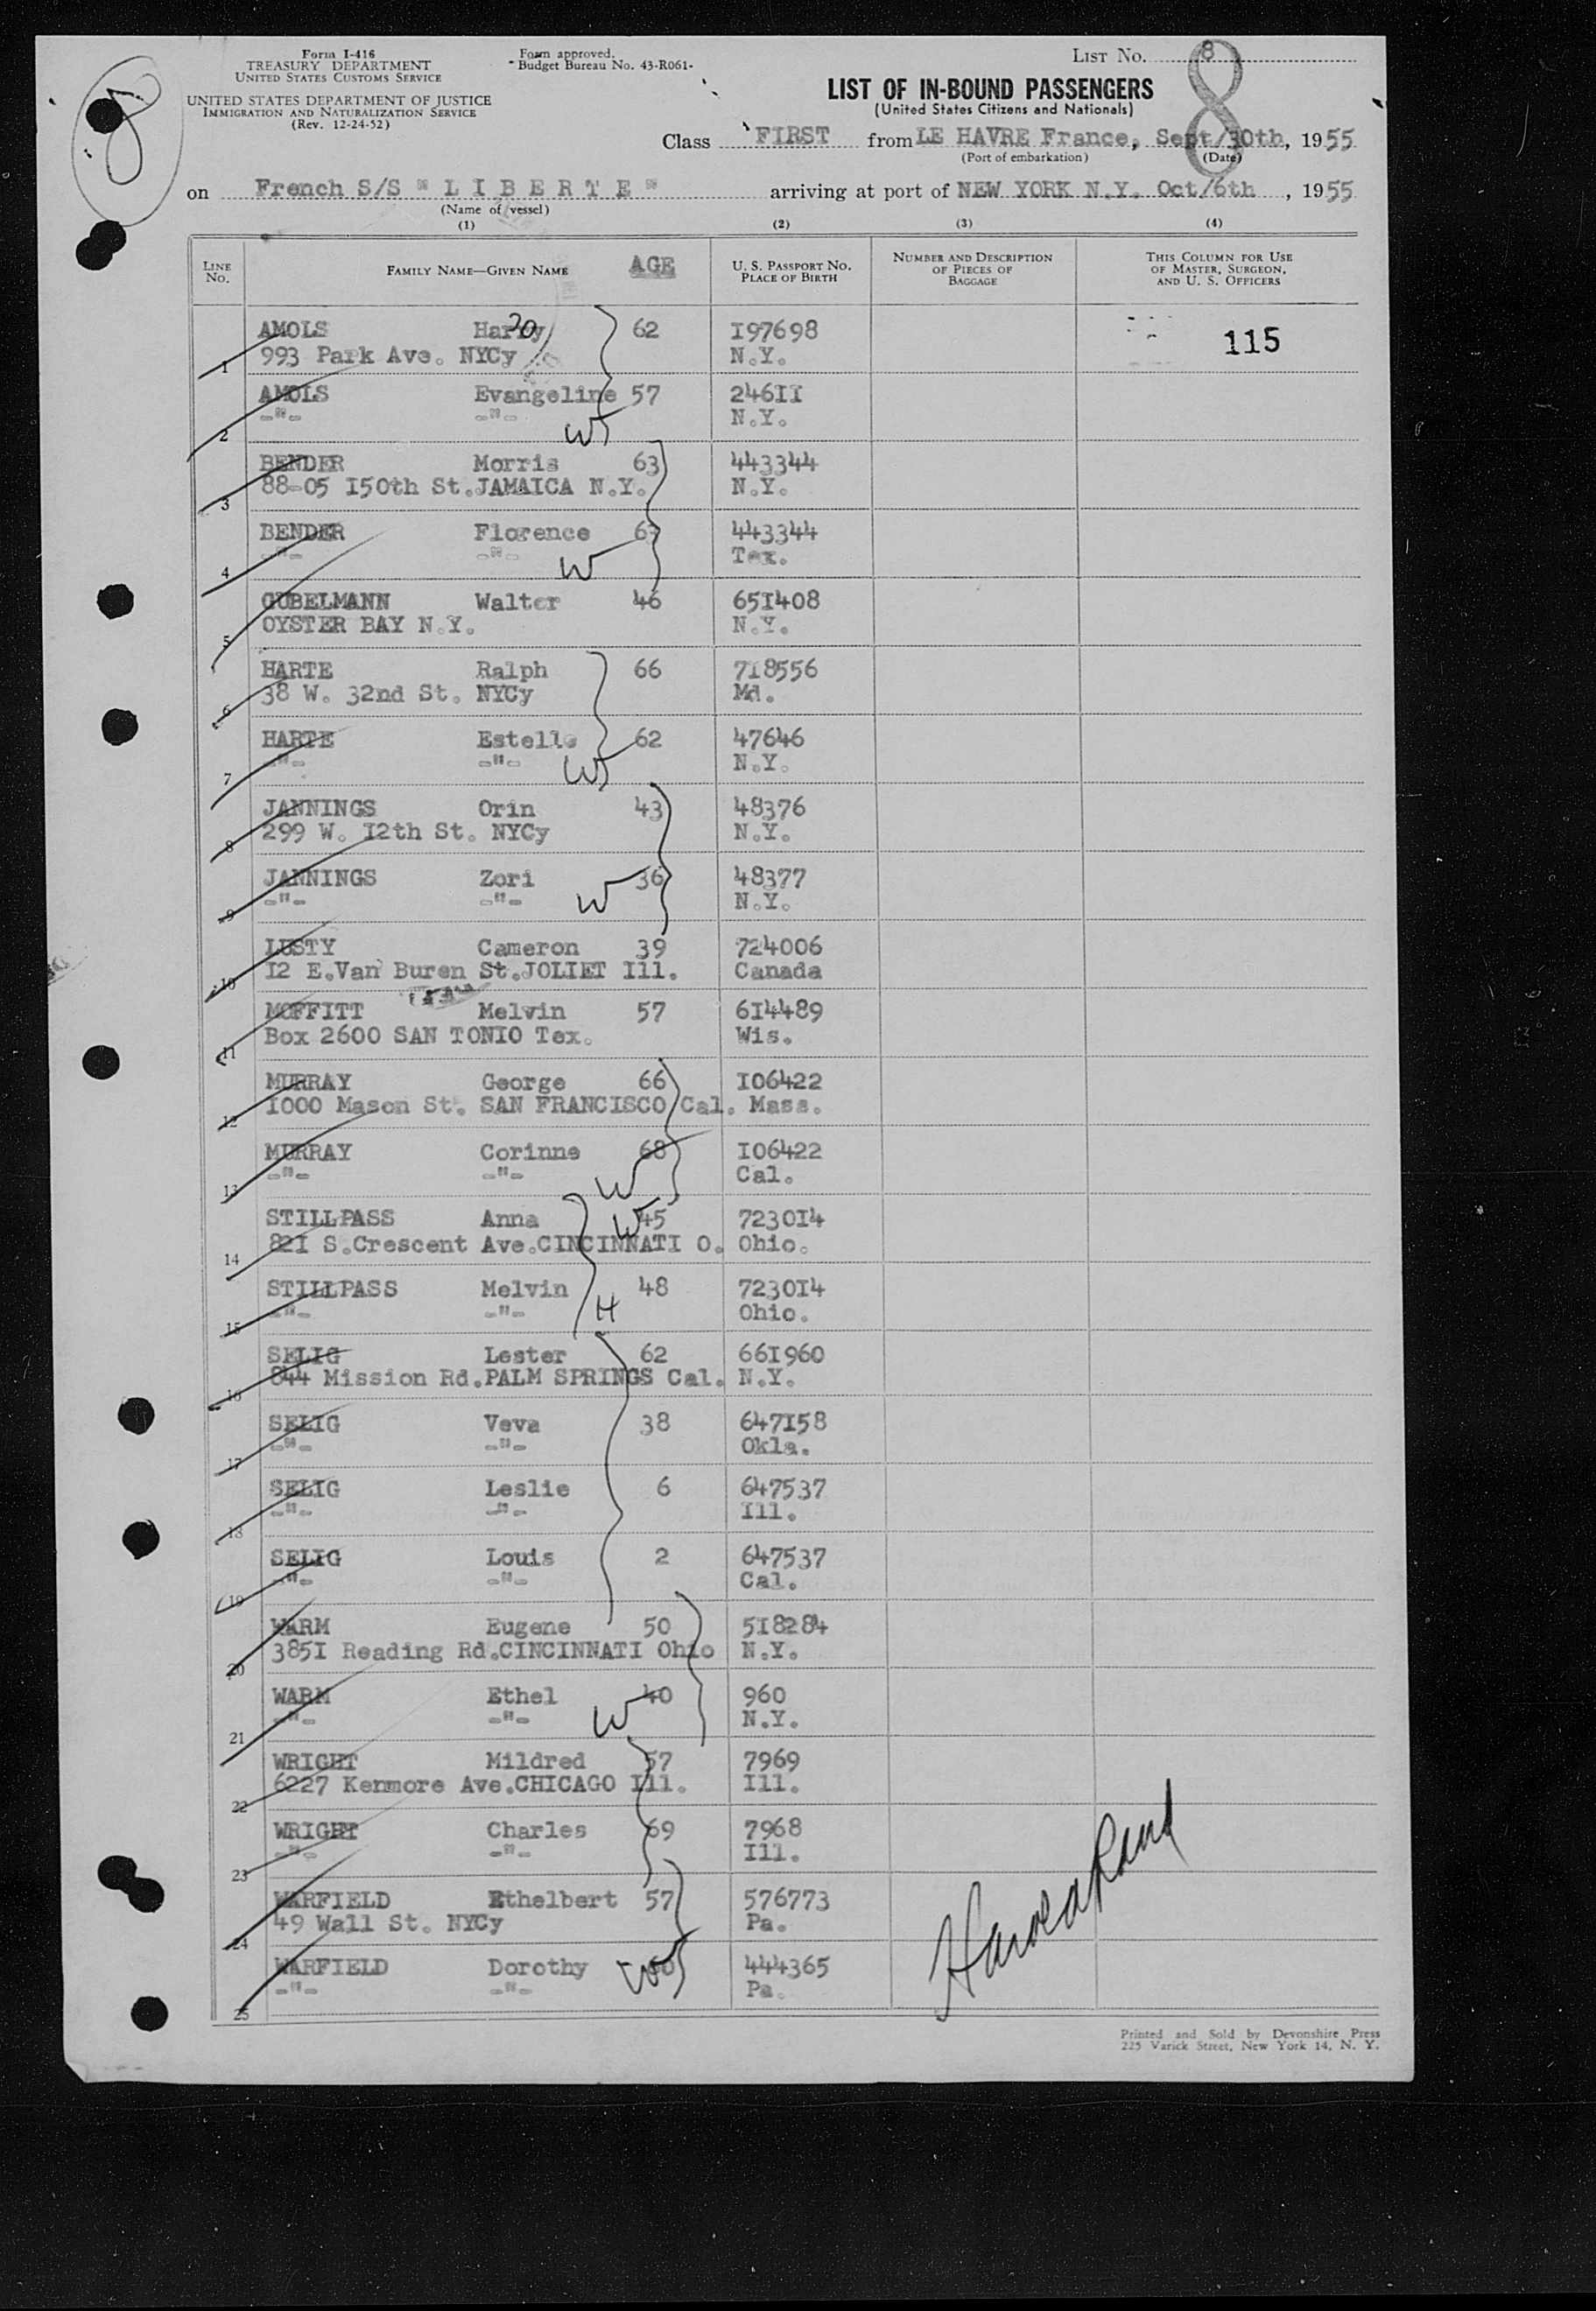 Form I-416
TREASURY DEPARTMENT
UNITED STATES CUSTOMS SERVICE
UNITED STATES DEPARTMENT OF JUSTICE
IMMIGRATION AND NATURALIZATION SERVICE
(Rev. 12-24-52)
Form approved.
Budget Bureau No. 43-R061-
LIST NO. 8
8
8
LIST OF IN-BOUND PASSENGERS
(United States Citizens and Nationals)
Class FIRST from LE HAVRE France, Sept/30th, 1955
(Port of embarkation) (Date)
on French S/S "LIBERTE" arriving at port of NEW YORK N.Y. Oct/6th, 1955
(Name of vessel)
(1) (2) (3) (4)
LINE NO. FAMILY NAME—GIVEN NAME AGE U. S. PASSPORT NO. PLACE OF BIRTH NUMBER AND DESCRIPTION OF PIECES OF BAGGAGE THIS COLUMN FOR USE OF MASTER, SURGEON, AND U. S. OFFICERS
AMOLS Harry 62 I97698 115
20
1 993 Park Ave. NYCy N.Y.
AMOLS Evangeline 57 246II
2 -"- -"- W N.Y.
BENDER Morris 63 443344
3 88-05 I50th St.JAMAICA N.Y. N.Y.
BENDER Florence 443344
4 -"- -"- W Tex.
GUBELMANN Walter 46 65I408
5 OYSTER BAY N.Y. N.Y.
HARTE Ralph 66 7I8556
6 38 W. 32nd St. NYCy Md.
HARTE Estelle 62 47646
7 -"- -"- W N.Y.
JANNINGS Orin 43 48376
8 299 W. I2th St. NYCy N.Y.
JANNINGS Zori 36 48377
9 -"- -"- W N.Y.
LUSTY Cameron 39 724006
10 I2 E.Van Buren St.JOLIET Ill. Canada
MOFFITT Melvin 57 6I4489
11 Box 2600 SAN TONIO Tex. Wis.
MURRAY George 66 I06422
12 I000 Mason St. SAN FRANCISCO Cal. Mass.
MURRAY Corinne 68 I06422
13 -"- -"- W Cal.
STILLPASS Anna W 45 7230I4
14 82I S.Crescent Ave.CINCINNATI O. Ohio.
STILLPASS Melvin 48 7230I4
15 -"- -"- H Ohio.
SELIG Lester 62 66I960
16 844 Mission Rd.PALM SPRINGS Cal. N.Y.
SELIG Veva 38 647I58
17 -"- -"- Okla.
SELIG Leslie 6 647537
18 -"- -"- Ill.
SELIG Louis 2 647537
19 -"- -"- Cal.
WARM Eugene 50 5I8284
20 385I Reading Rd.CINCINNATI Ohio N.Y.
WARM Ethel 40 960
21 -"- -"- W N.Y.
WRIGHT Mildred 57 7969
22 6227 Kenmore Ave.CHICAGO Ill. Ill.
WRIGHT Charles 69 7968
23 -"- -"- Ill.
WARFIELD Ethelbert 57 576773
24 49 Wall St. NYCy Pa.
WARFIELD Dorothy W 444365
25 -"- -"- Pa.
Printed and Sold by Devonshire Press
225 Varick Street, New York 14, N. Y.